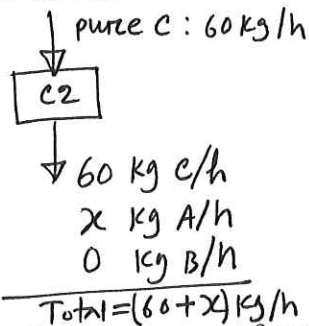 purce C : 60 kg/h
C2
60 kg C/h
x kg A/h
0 kg B/h
Total=(60+x) kg/h